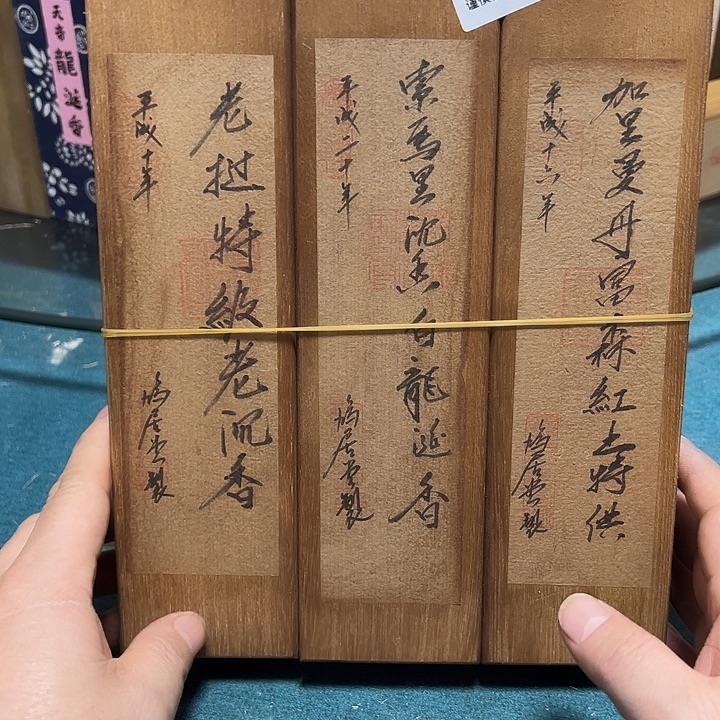 天帝龍涎香
老挝特級老沉香
平成十年
鳩居堂製
索馬里沉香白龍涎香
平成二十年
鳩居堂製
加里曼丹富森紅土特供
平成十六年
鳩居堂製